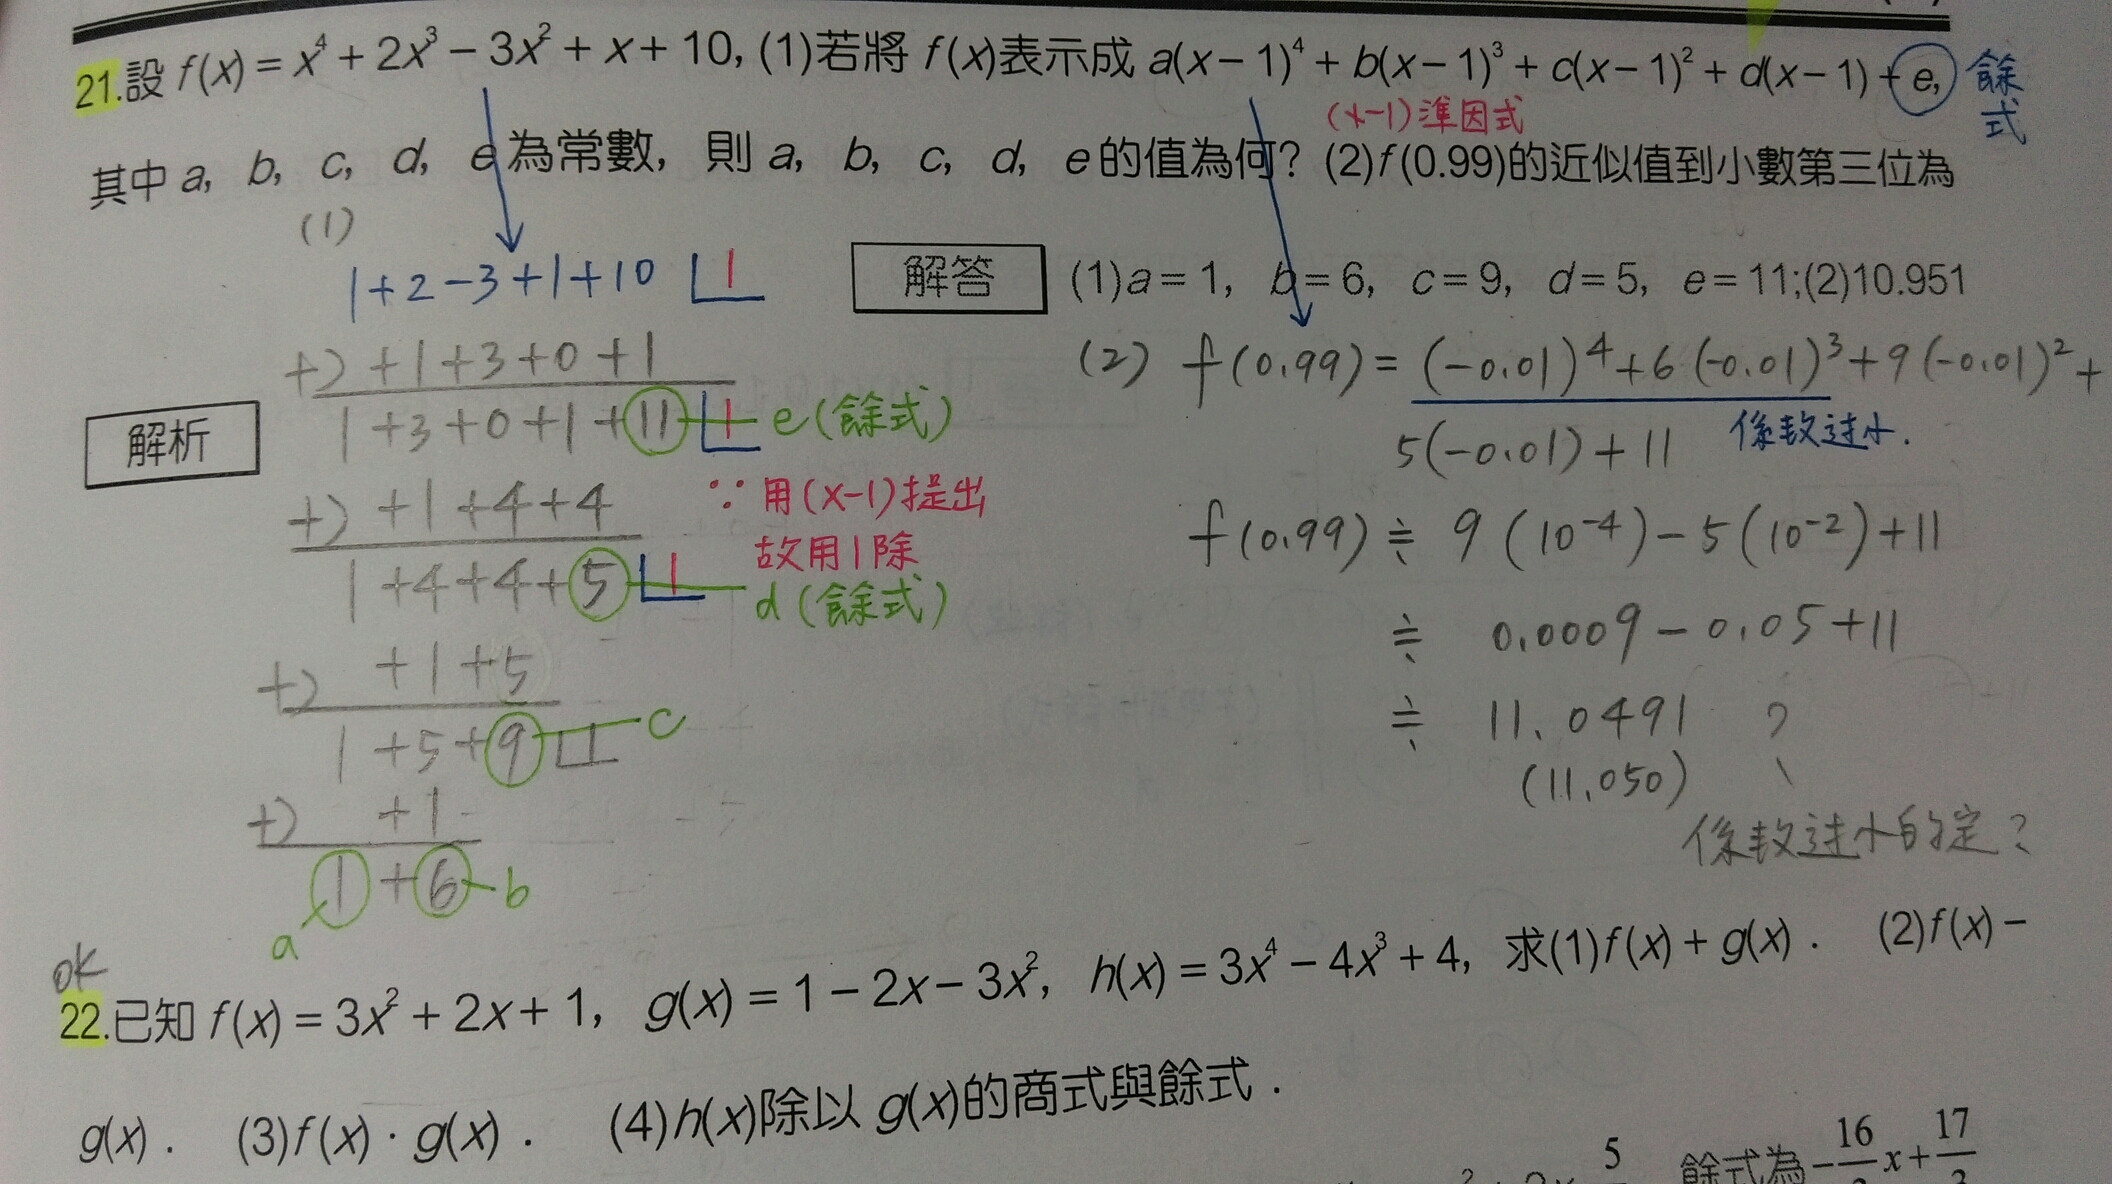 21.設 f(x) = x⁴ + 2x³ − 3x² + x + 10, (1)若將 f(x)表示成 a(x − 1)⁴ + b(x − 1)³ + c(x − 1)² + d(x − 1) + e, 餘式
(x-1)準因式
其中 a, b, c, d, e 為常數, 則 a, b, c, d, e 的值為何? (2)f(0.99)的近似值到小數第三位為
(1)
1+2-3+1+10 1
解答 (1)a = 1, b = 6, c = 9, d = 5, e = 11;(2)10.951
+) +1+3+0+1
1+3+0+1+11 1 e(餘式)
解析
+) +1+4+4
∵用(x-1)提出
故用1除
1+4+4+5 1 d(餘式)
+) +1+5
1+5+9 1 c
+) +1
1+6 b
a
(2) f(0.99) = (-0.01)⁴+6(-0.01)³+9(-0.01)²+
5(-0.01)+11 係數过小.
f(0.99) ≒ 9(10⁻⁴)-5(10⁻²)+11
≒ 0.0009-0.05+11
≒ 11.0491 ?
(11.050)
係數过小的定?
ok
22.已知 f(x) = 3x² + 2x + 1, g(x) = 1 − 2x − 3x², h(x) = 3x⁴ − 4x³ + 4, 求(1)f(x) + g(x). (2)f(x) −
g(x). (3)f(x) · g(x). (4)h(x)除以 g(x)的商式與餘式.
5 餘式為 −16 x + 17